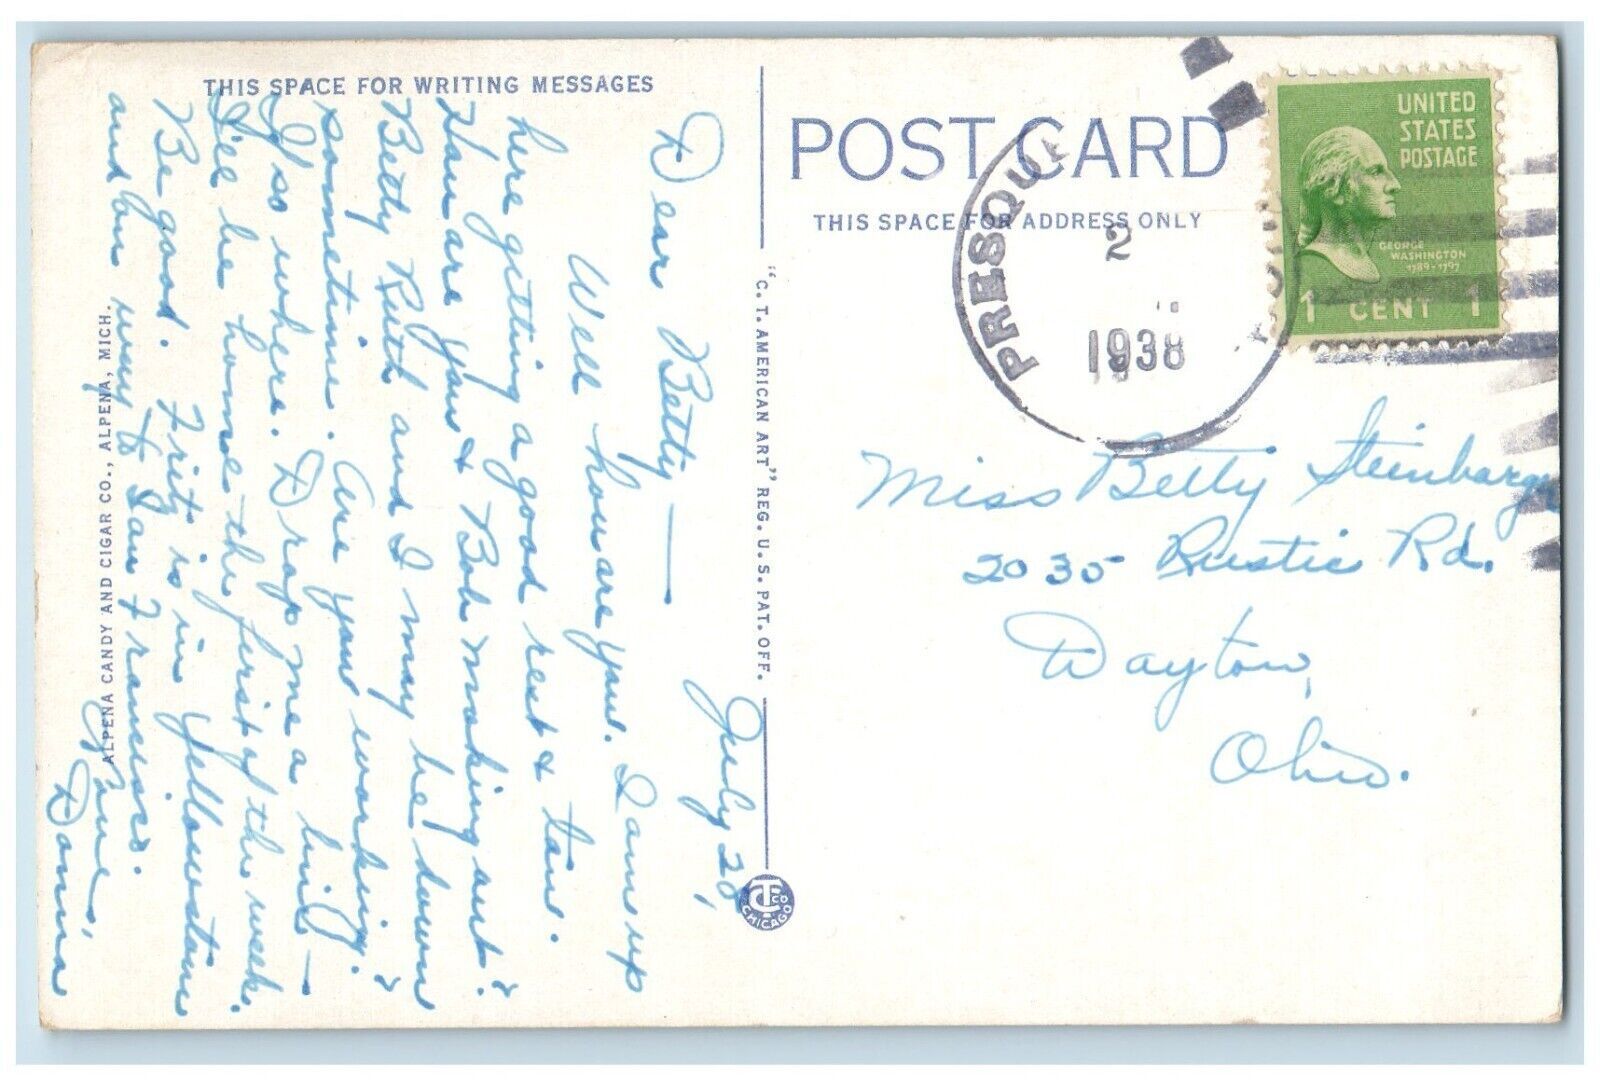 THIS SPACE FOR WRITING MESSAGES
July 28,
Dear Betty —
Well how are you. I am up
here getting a good rest & tan.
How are you & Bob making out?
Betty Ruth and I may be down
sometime. Are you working?
If so where. Drop me a line —
I'll be home the first of the week.
Be good. Fritz is in Yellowstone
and on way to San Francisco.
Love,
Donna
ALPENA CANDY AND CIGAR CO., ALPENA, MICH.
"C. T. AMERICAN ART" REG. U. S. PAT. OFF.
CHICAGO
POST CARD
THIS SPACE FOR ADDRESS ONLY
PRESQUE
2
1938
UNITED
STATES
POSTAGE
GEORGE
WASHINGTON
1789-1797
1 CENT 1
Miss Betty Steinbarger
2035 Rustic Rd.
Dayton,
Ohio.